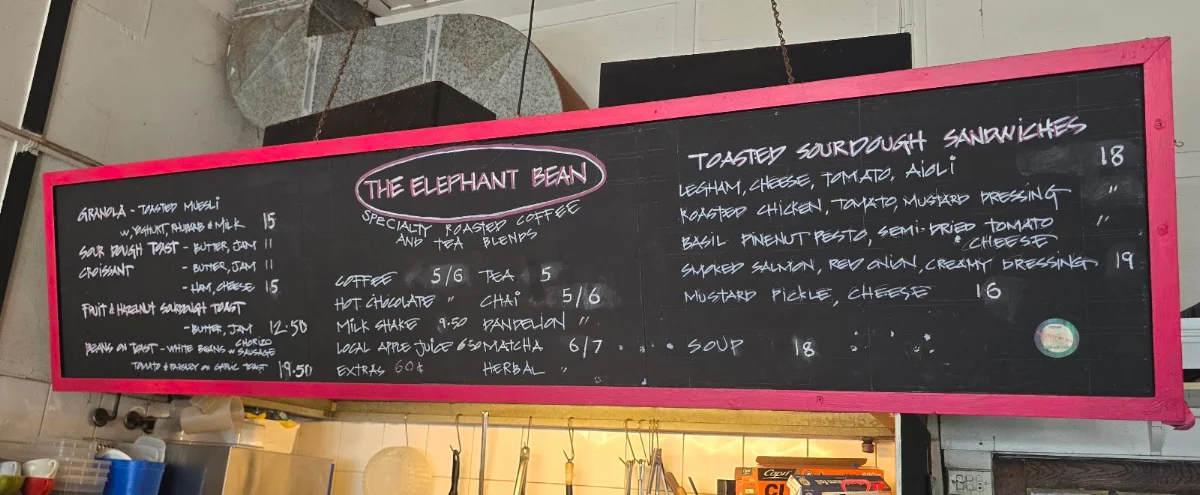 GRANOLA - TOASTED MUESLI
w, YOGHURT, RHUBARB & MILK 15
SOUR DOUGH TOAST - BUTTER, JAM 11
CROISSANT - BUTTER, JAM 11
- HAM, CHEESE 15
FRUIT & HAZELNUT SOURDOUGH TOAST
- BUTTER, JAM 12.50
BEANS ON TOAST - WHITE BEANS w CHORIZO SAUSAGE
TOMATO & PARSLEY ON GARLIC TOAST 19.50
THE ELEPHANT BEAN
SPECIALTY ROASTED COFFEE
AND TEA BLENDS
COFFEE 5/6
HOT CHOCOLATE "
MILK SHAKE 9.50
LOCAL APPLE JUICE 6.50
EXTRAS 60¢
TEA 5
CHAI 5/6
DANDELION "
MATCHA 6/7
HERBAL "
TOASTED SOURDOUGH SANDWICHES
LEGHAM, CHEESE, TOMATO, AIOLI 18
ROASTED CHICKEN, TOMATO, MUSTARD DRESSING "
BASIL PINENUT PESTO, SEMI-DRIED TOMATO "
& CHEESE
SMOKED SALMON, RED ONION, CREAMY DRESSING 19
MUSTARD PICKLE, CHEESE 16
SOUP 18
Capri